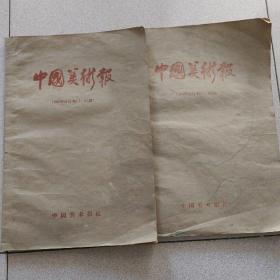 中國美術報
中国美术报社
中國美術報
中国美术报社